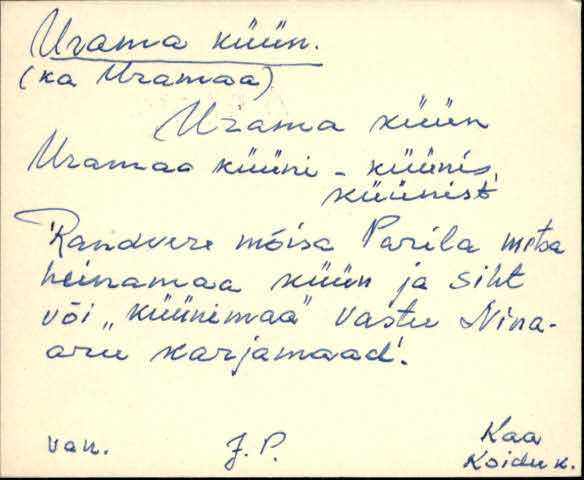 Urama küün.
(ka Uramaa)
Urama küün
Uramaa küüni - küünis,
küünist
Randvere mõisa Parila metsa
heinamaa küün ja siht
või „küünimaa" vastu Nina-
aru karjamaad.
van. J. P. Kaa
Koidu k.